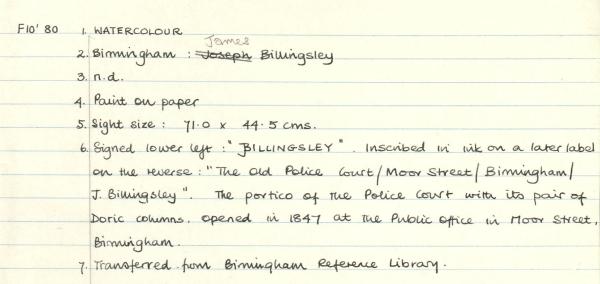 F10'80 1. WATERCOLOUR
James
2. Birmingham : Joseph Billingsley
3. n.d.
4. Paint on paper
5. Sight size : 71.0 x 44.5 cms.
6. Signed lower left : "JBILLINGSLEY". Inscribed in ink on a later label
on the reverse : "The Old Police Court/Moor Street/Birmingham/
J. Billingsley". The portico of the Police Court with its pair of
Doric columns, opened in 1847 at the Public Office in Moor Street,
Birmingham.
7. Transferred from Birmingham Reference Library.